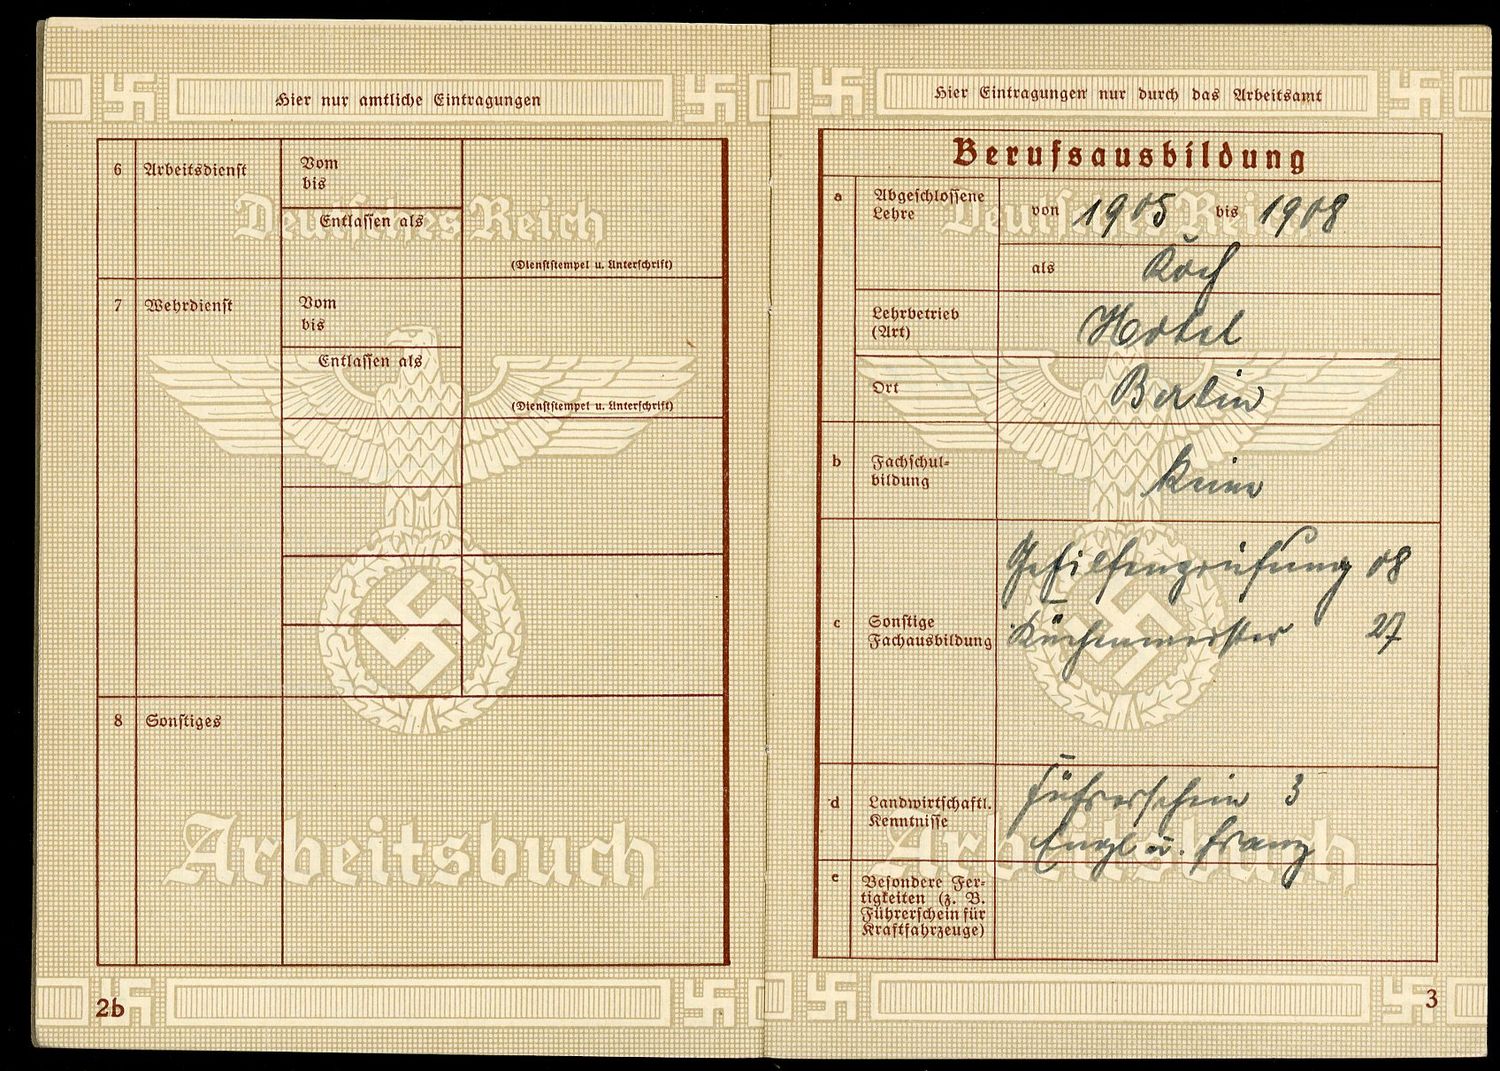 Hier nur amtliche Eintragungen
6 Arbeitsdienst
Vom
bis
Entlassen als
(Dienststempel u. Unterschrift)
7 Wehrdienst
Vom
bis
Entlassen als
(Dienststempel u. Unterschrift)
8 Sonstiges
Deutsches Reich
Arbeitsbuch
2b
Hier Eintragungen nur durch das Arbeitsamt
Berufsausbildung
a Abgeschlossene
Lehre
von 1905 bis 1908
als Koch
Lehrbetrieb
(Art)
Hotel
Ort Berlin
b Fachschul-
bildung
keine
c Sonstige
Fachausbildung
Gehilfenprüfung 08
Küchenmeister 27
d Landwirtschaftl.
Kenntnisse
Führerschein 3
Engl u. franz
e Besondere Fer-
tigkeiten (z. B.
Führerschein für
Kraftfahrzeuge)
Deutsches Reich
Arbeitsbuch
3